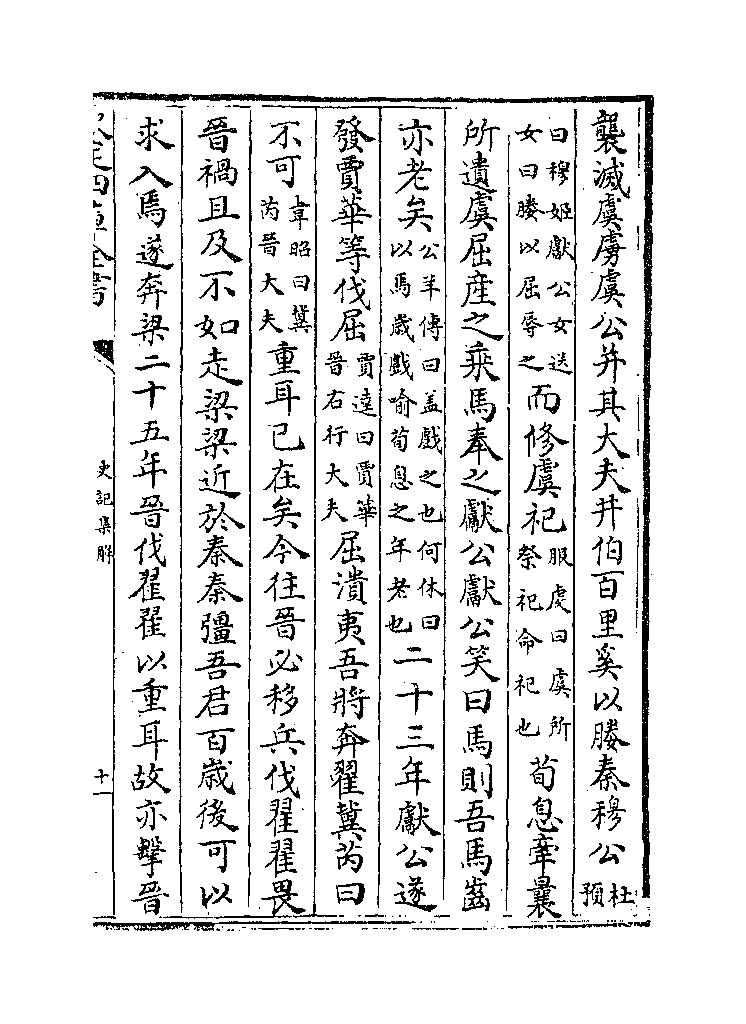 襲滅虞虜虞公并其大夫井伯百里奚以媵秦穆公杜預
曰穆姬獻公女送女曰媵以屈辱之而修虞祀服虔曰虞所祭祀命祀也荀息牽曩
所遺虞屈産之乘馬奉之獻公獻公笑曰馬則吾馬齒
亦老矣公羊傳曰盖戲之也何休曰以馬歲戲喻荀息之年老也二十三年獻公遂
發賈華等伐屈賈逵曰賈華晉右行大夫屈潰夷吾將奔翟冀芮曰
不可韋昭曰冀芮晉大夫重耳已在矣今往晉必移兵伐翟翟畏
晉禍且及不如走梁梁近於秦秦彊吾君百歲後可以
求入焉遂奔梁二十五年晉伐翟翟以重耳故亦擊晉
欽定四庫全書
史記集解
十一